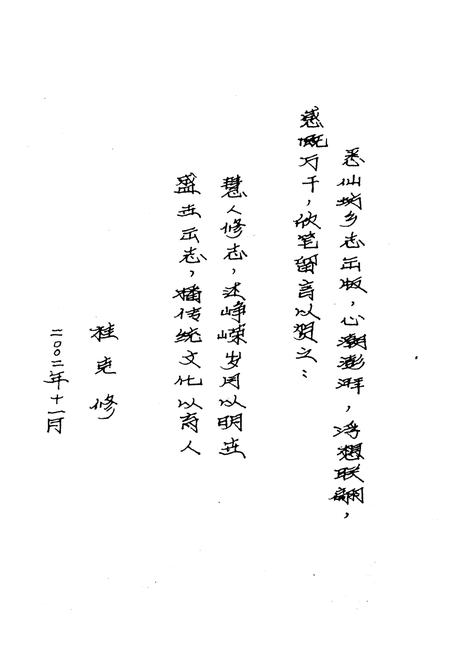 悉仙坊乡志出版，心潮澎湃，浮想联翩，
感慨万千，欣笔留言以贺之：
慧人修志，述峥嵘岁月以明世
盛世出志，播传统文化以育人
桂克修
二〇〇二年十一月